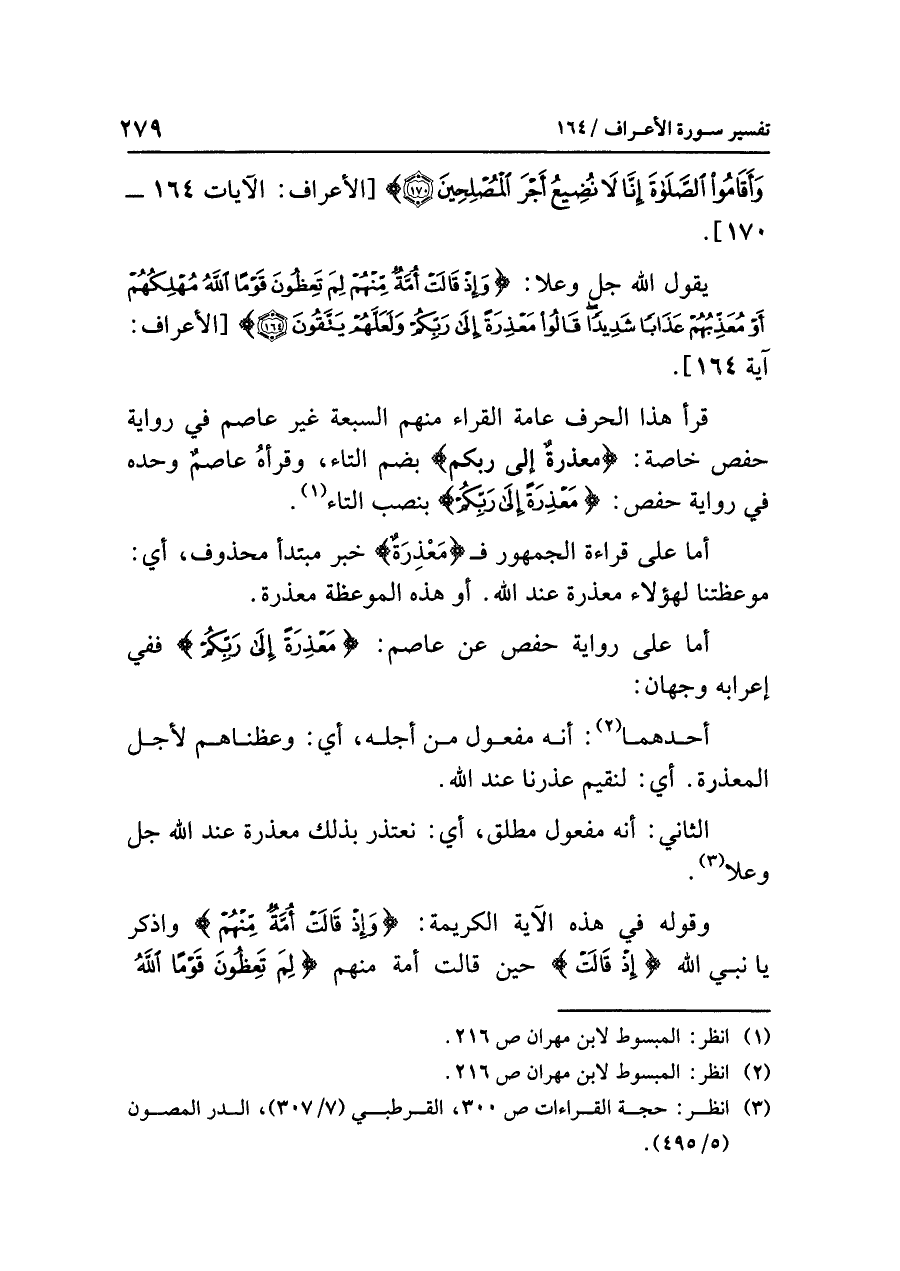 تفسير سورة الأعراف / ١٦٤ ٢٧٩
وَأَقَامُوا۟ ٱلصَّلَوٰةَ إِنَّا لَا نُضِيعُ أَجْرَ ٱلْمُصْلِحِينَ ﴿١٧٠﴾﴾ [الأعراف: الآيات ١٦٤ ــ
١٧٠].
يقول الله جل وعلا: ﴿وَإِذْ قَالَتْ أُمَّةٌ مِّنْهُمْ لِمَ تَعِظُونَ قَوْمًا ٱللَّهُ مُهْلِكُهُمْ
أَوْ مُعَذِّبُهُمْ عَذَابًا شَدِيدًا ۖ قَالُوا۟ مَعْذِرَةً إِلَىٰ رَبِّكُمْ وَلَعَلَّهُمْ يَتَّقُونَ ﴿١٦٤﴾﴾ [الأعراف:
آية ١٦٤].
قرأ هذا الحرف عامة القراء منهم السبعة غير عاصم في رواية
حفص خاصة: ﴿معذرةٌ إلى ربكم﴾ بضم التاء، وقرأهُ عاصمٌ وحده
في رواية حفص: ﴿مَعْذِرَةً إِلَىٰ رَبِّكُمْ﴾ بنصب التاء(١).
أما على قراءة الجمهور فـ ﴿مَعْذِرَةٌ﴾ خبر مبتدأ محذوف، أي:
موعظتنا لهؤلاء معذرة عند الله. أو هذه الموعظة معذرة.
أما على رواية حفص عن عاصم: ﴿مَعْذِرَةً إِلَىٰ رَبِّكُمْ﴾ ففي
إعرابه وجهان:
أحدهما(٢): أنه مفعول من أجله، أي: وعظناهم لأجل
المعذرة. أي: لنقيم عذرنا عند الله.
الثاني: أنه مفعول مطلق، أي: نعتذر بذلك معذرة عند الله جل
وعلا(٣).
وقوله في هذه الآية الكريمة: ﴿وَإِذْ قَالَتْ أُمَّةٌ مِّنْهُمْ﴾ واذكر
يا نبي الله ﴿إِذْ قَالَتْ﴾ حين قالت أمة منهم ﴿لِمَ تَعِظُونَ قَوْمًا ٱللَّهُ
(١) انظر: المبسوط لابن مهران ص ٢١٦.
(٢) انظر: المبسوط لابن مهران ص ٢١٦.
(٣) انظر: حجة القراءات ص ٣٠٠، القرطبي (٧/ ٣٠٧)، الدر المصون
(٥/ ٤٩٥).